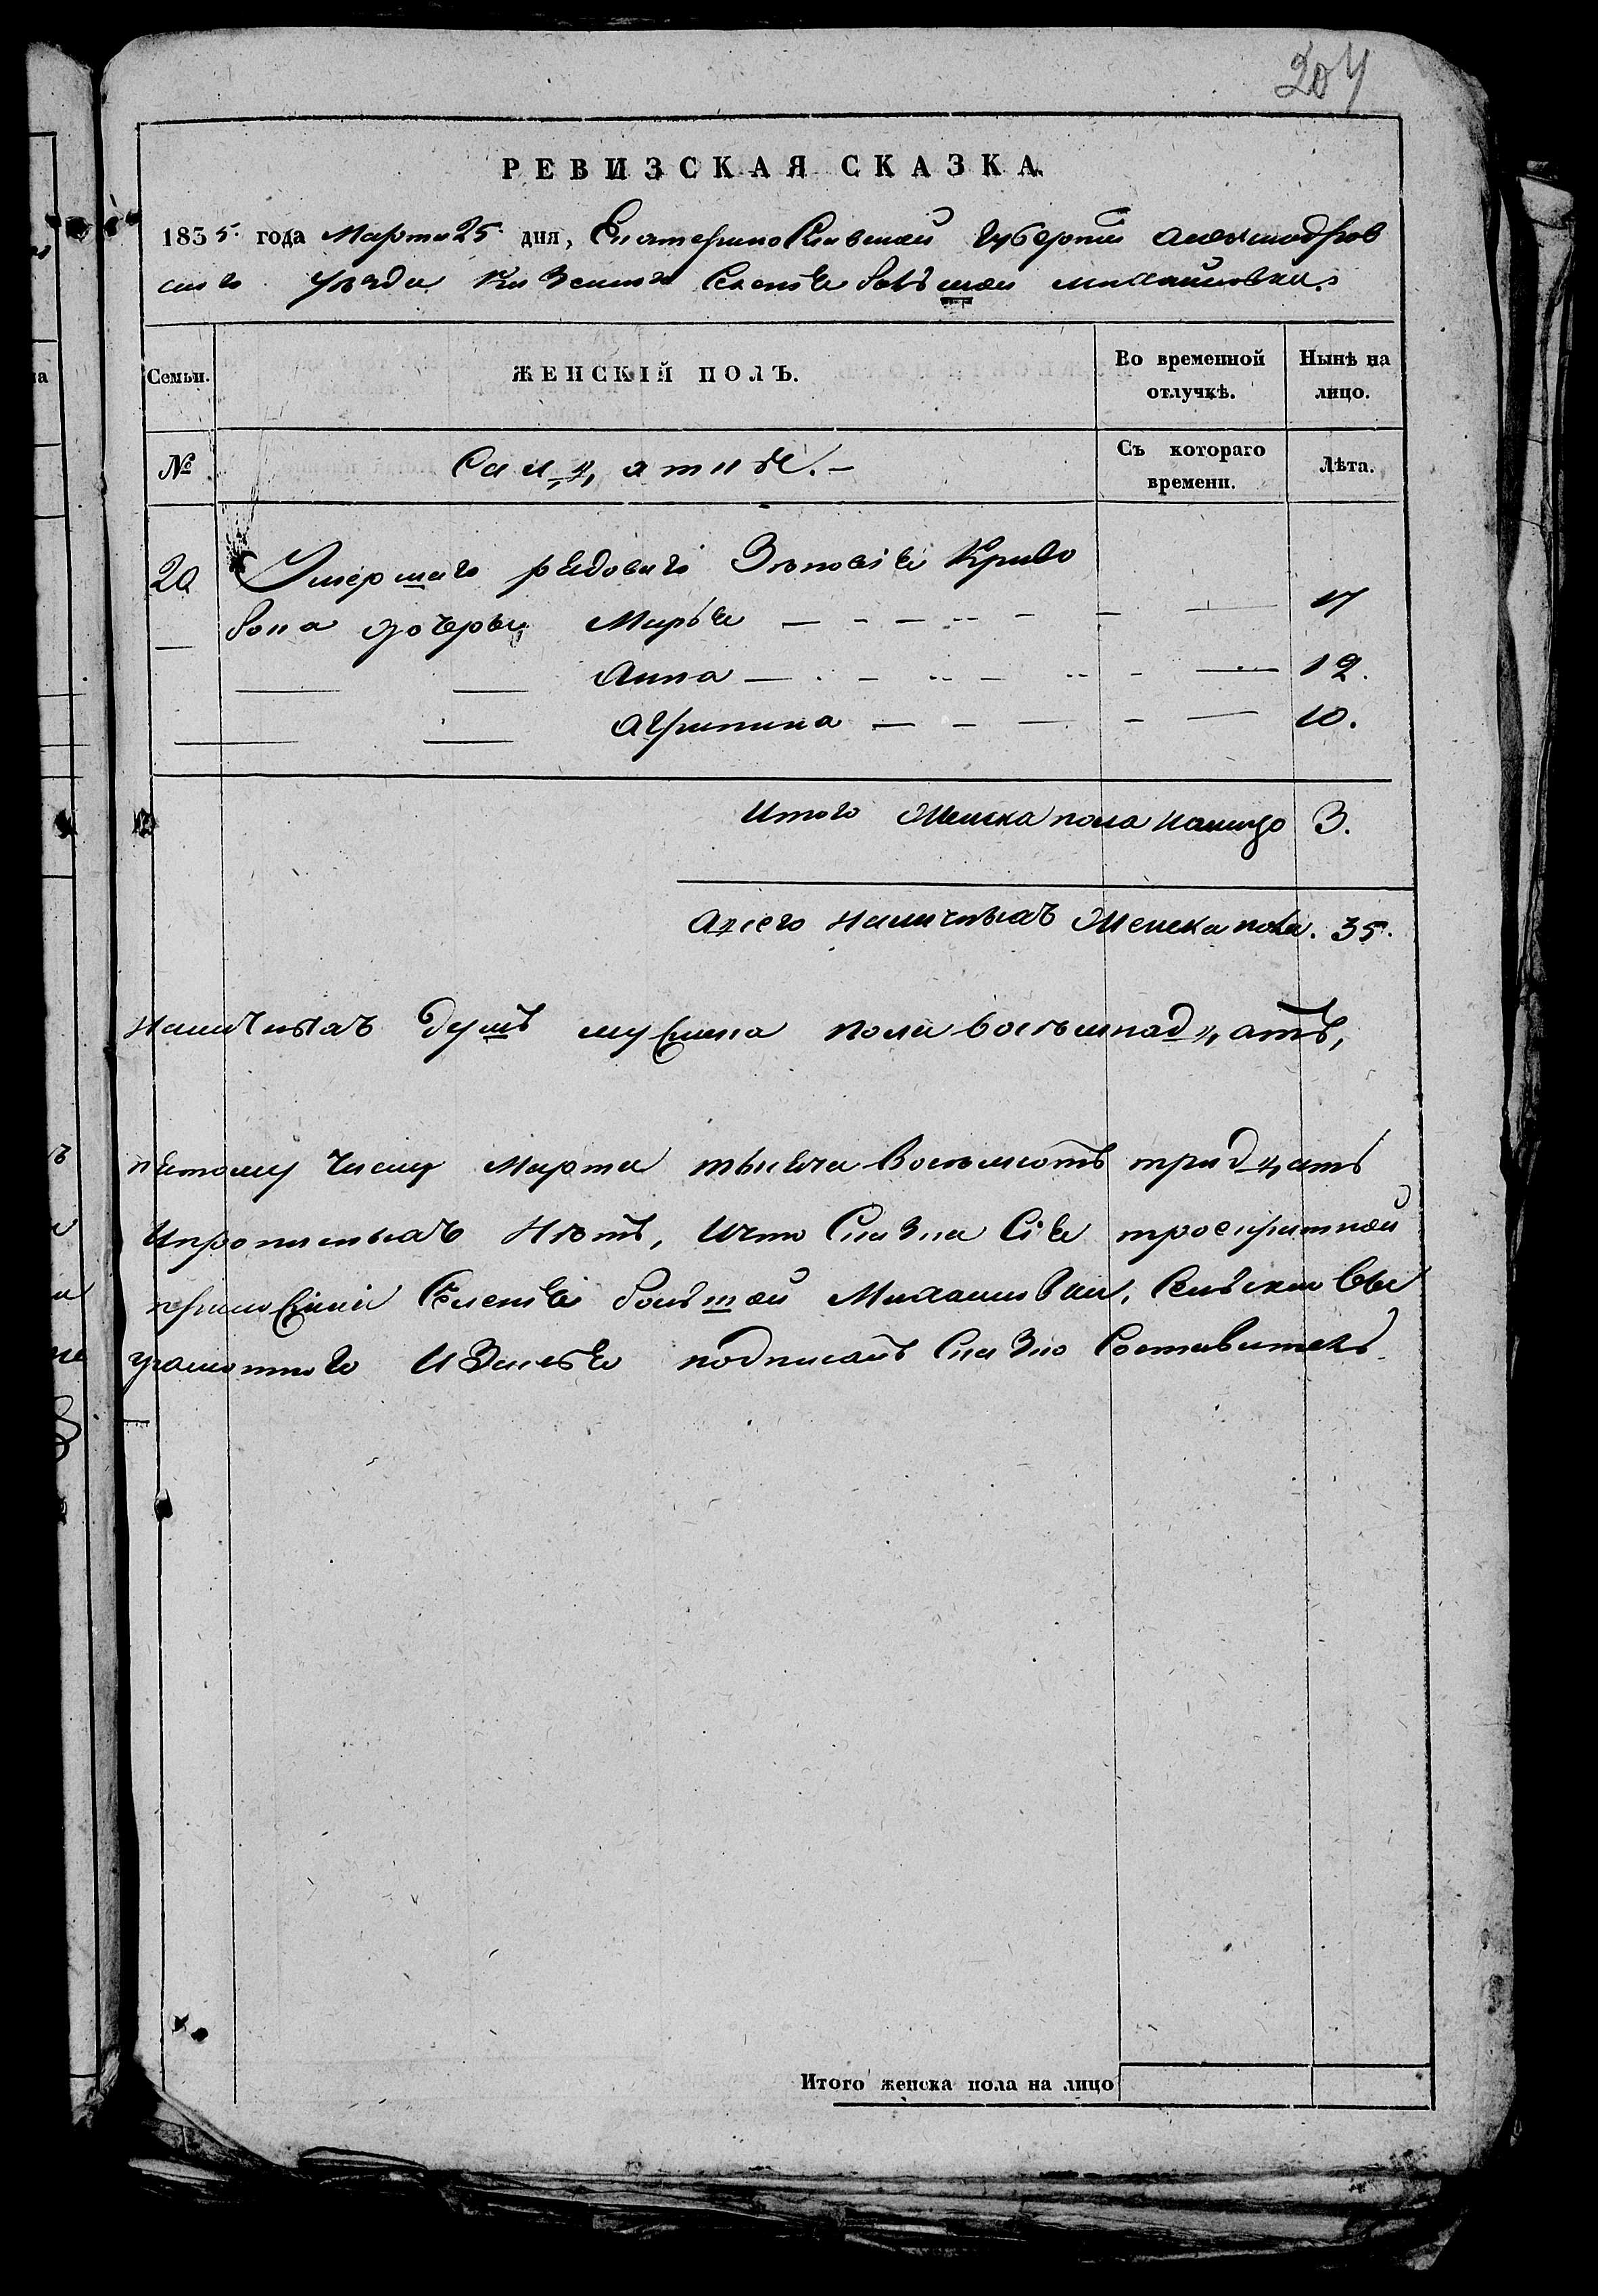 204
РЕВИЗСКАЯ СКАЗКА.
1835 года Марта 25 дня, Екатеринославской Губернии Александров
скаго уѣзда Казеннаго Селенія большой михайловки.
Семьи.
ЖЕНСКІЙ ПОЛЪ.
Во временной отлучкѣ.
Нынѣ на лицо.
№
Солдатскіе.
Съ котораго времени.
Лѣта.
20 Умершаго рядоваго Зѣновія Криво
бока дочеры Марья 17
Анна 12.
Агрипина 10.
Итого Женска пола налицо 3.
Авсего наличныхъ Женска пола. 35.
наличныхъ душъ мужска пола восемнадцать,
пятому числу Марта тысяча восемьсотъ тридцать
ипрописныхъ нѣтъ, ичто Сказка Сія троекратной
Селенія большой Михайловки, Сельскій вы
грамотнаго подписалъ Сказко Составитель
Итого женска пола на лицо